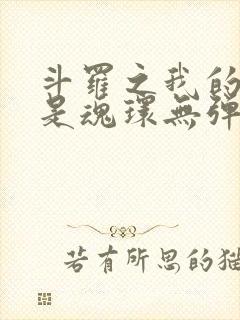 斗羅之我的
是魂環無彈
若有所思的猫